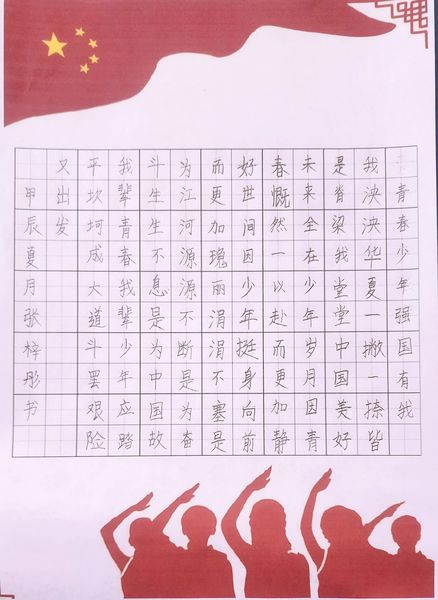 青春少年强国有我
我泱泱华夏一撇一捺皆
是脊梁我堂堂中国美好
未来全在少年岁月因青
春慨然一以赴而更加静
好世间因少年挺身向前
而更加瑰丽涓涓不塞是
为江河源源不断是为奋
斗生生不息是为中国故
我辈青春我辈少年应踏
平坎坷成大道斗罢艰险
又出发
甲辰夏月张梓彤书